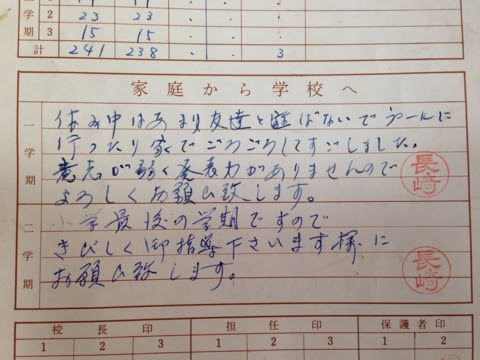 学 2 23 23
期 3 15 15
計 241 238 3
家庭から学校へ
一学期
休み中はあまり友達と遊ばないでプールに
行ったり家でごろごろしてすごしました。
意志が弱く発表力がありませんので
よろしくお願い致します。
長崎
二学期
小学最後の学期ですので
きびしく御指導下さいます様に
お願い致します。
長崎
校長印 担任印 保護者印
1 2 3 1 2 3 1 2